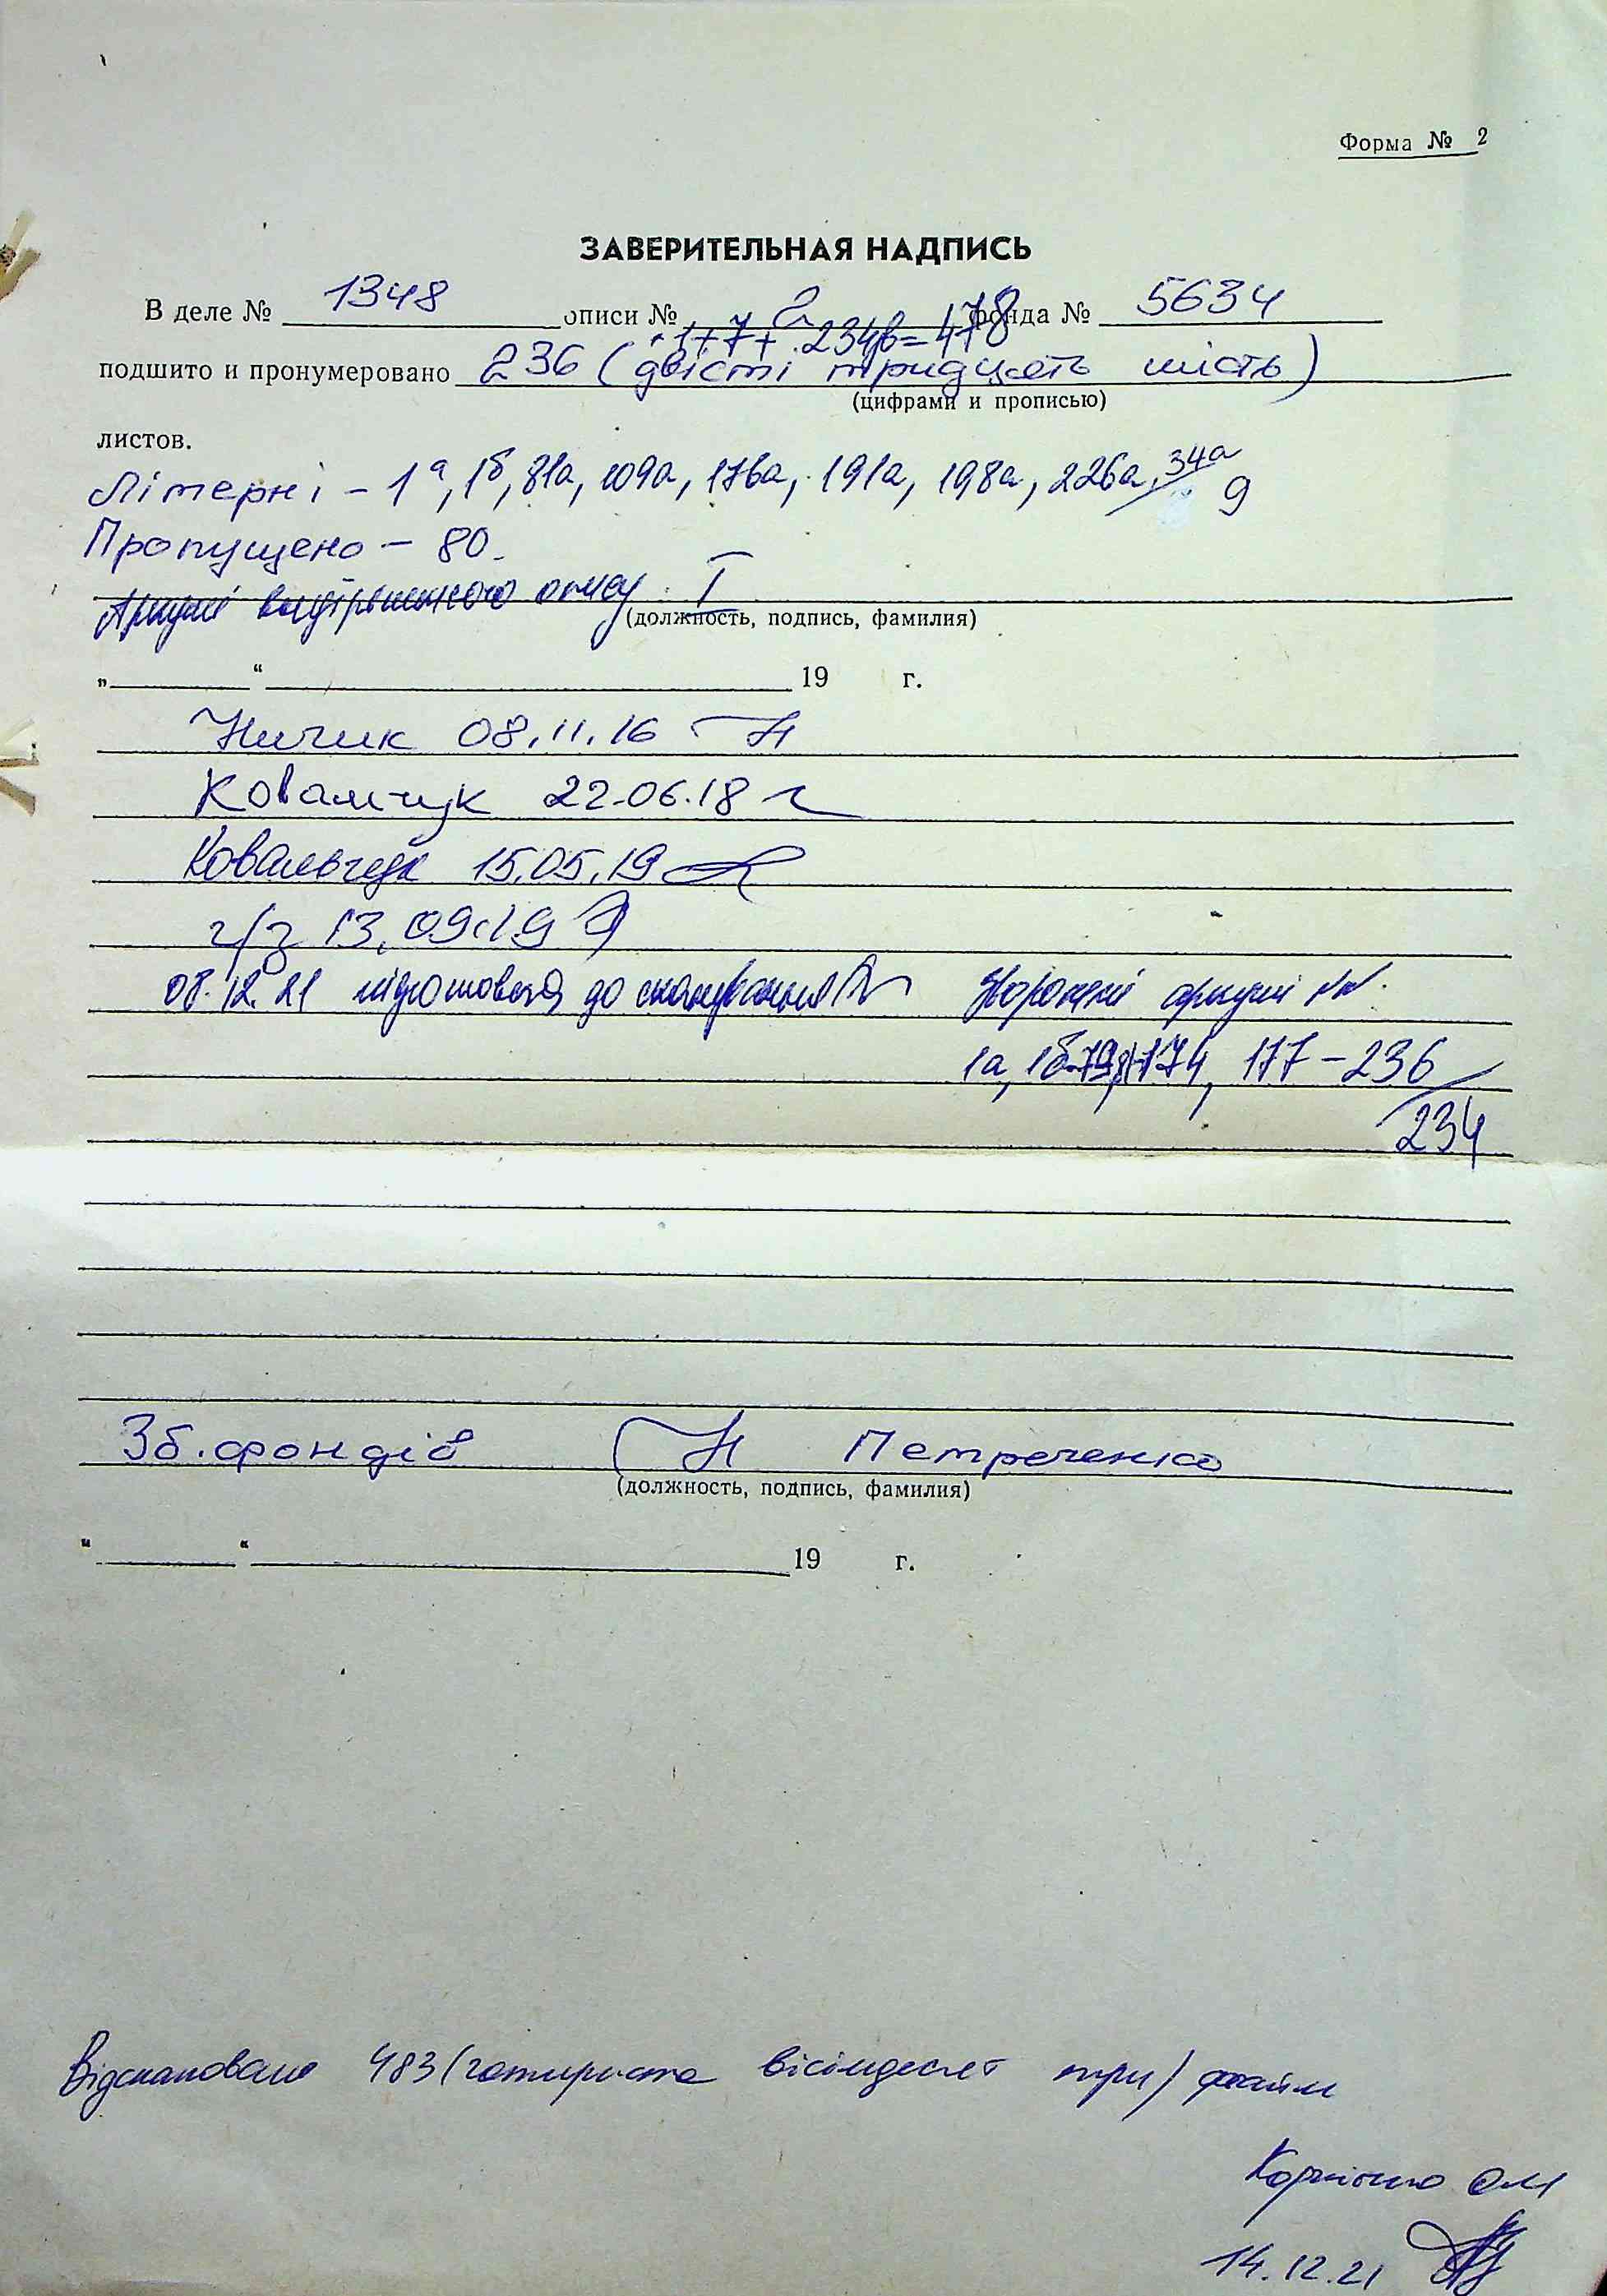 Форма № 2
ЗАВЕРИТЕЛЬНАЯ НАДПИСЬ
В деле № 1348 описи № 2 фонда № 5634
+1+7+ 234зв=478
подшито и пронумеровано 236 (двісті тридцять шість)
(цифрами и прописью)
листов.
Літерні – 1а, 1б, 81а, 109а, 176а, 191а, 198а, 226а, 34а 9
Пропущено – 80.
Аркуші внутрішнього опису I
(должность, подпись, фамилия)
„ “ 19 г.
Ничик 08.11.16
Ковальчук 22.06.18
Ковальчук 15.05.19
13.09.19
08.12.21 підготовка до сканування Зворотні аркуші
1а, 1б-79, 81-174, 177–236
234
Зб.фондів Петреченко
(должность, подпись, фамилия)
„ “ 19 г.
Відскановано 483 (чотириста вісімдесят три) файли
ОМ
14.12.21